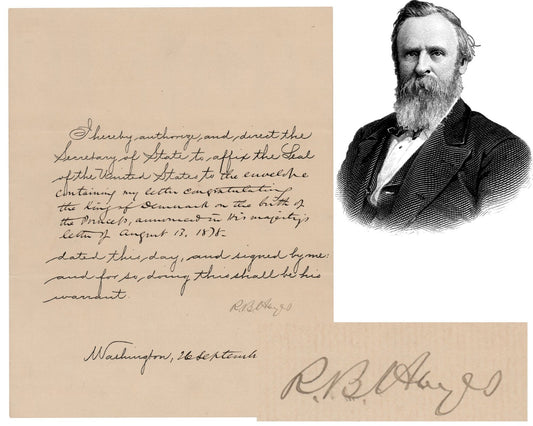 I hereby authorize, and direct the
Secretary of State to, affix the Seal
of the United States to the envelope
containing my letter congratulating
the King of Denmark on the birth of
the Princess, announced in His majesty's
letter of August 13, 1875
dated this day, and signed by me:
and for so, doing this shall be his
warrant.
R.B. Hayes
Washington, 26 Septemb
R.B. Hayes